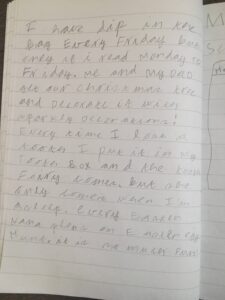 I have dip in the
Bag Every Friday but
only if i read monday to
Friday. me and my DaD
get our christmas tree
and Decorate it with
sparkly Decorations!
Every time I lose a
tooth I put it in my
tooth Box and the tooth
Fairy comes. but she
only comes when I'm
asleep. every Easter
nana an E egg
Hunt. it is me
M